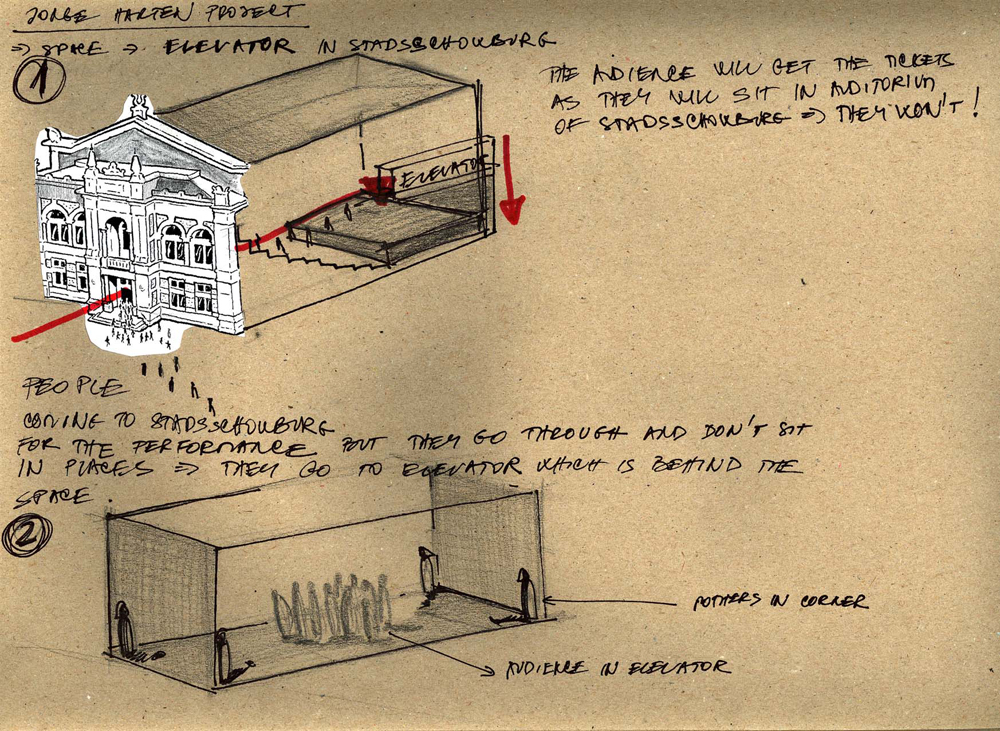 JORGE HARTEN PROJECT
⇒ SPACE ⇒ ELEVATOR IN STADSSCHOUWBURG
1
THE ADIENCE WILL GET THE TICKETS
AS THEY WILL SIT IN AUDITORIUM
OF STADSSCHOUWBURG ⇒ THEY WON'T!
ELEVATOR
PEOPLE
COMING TO STADSSCHOUWBURG
FOR THE PERFORMANCE BUT THEY GO THROUGH AND DON'T SIT
IN PLACES ⇒ THEY GO TO ELEVATOR WHICH IS BEHIND THE
SPACE
2
IN CORNER
AUDIENCE IN ELEVATOR